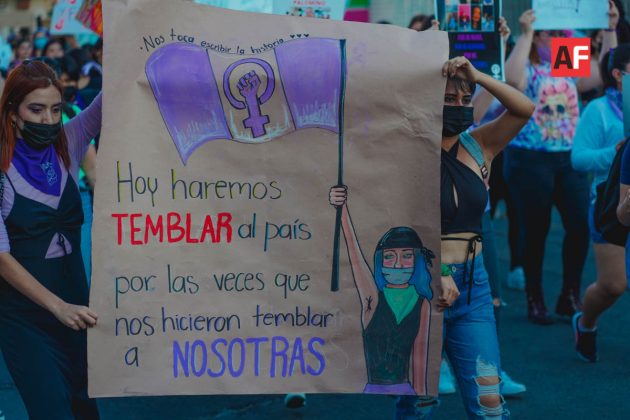 Nos toca escribir la historia ♥♥♥
AF
PALOMINO
Hoy haremos
TEMBLAR al país
por las veces que
nos hicieron temblar
a NOSOTRAS